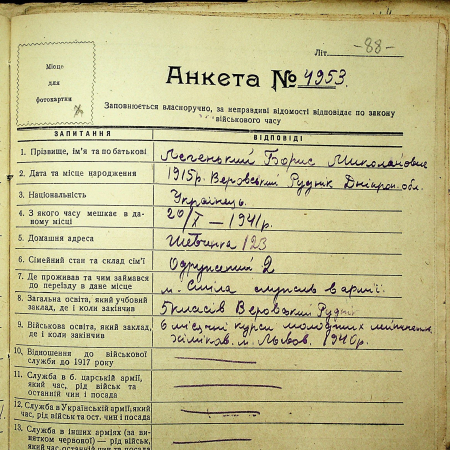 Літ. -88-
Місце
для
фотокартки
Анкета № 4953.
Заповнюється власноручно, за неправдиві відомості відповідає по закону
військового часу
ЗАПИТАННЯ
ВІДПОВІДІ
1. Прізвище, ім'я та по батькові
Борис Миколайович
2. Дата та місце народження
1915р. Веровський Рудник Дніпроп. обл.
3. Національність
Українець
4. З якого часу мешкає в да-
ному місці
20/X — 1941р.
5. Домашня адреса
Шевченка 123
6. Сімейний стан та склад сім'ї
Одружений 2
7. Де проживав та чим займався
до переїзду в дане місце
м. Сміла служив в армії.
8. Загальна освіта, який учбовий
заклад, де і коли закінчив
5 класів Веровський Рудник
9. Військова освіта, який заклад,
де і коли закінчив
6 місячні курси молодших лейтенантів
хіміків. м. Львов. 1940р.
10. Відношення до військової
служби до 1917 року
11. Служба в б. царській армії,
який час, рід військ та
останній чин і посада
12. Служба в Українській армії, який
час, рід військ та ост. чин і посада
13. Служба в інших арміях (за ви-
нятком червоної) — рід військ,
який час, останній чин та посада